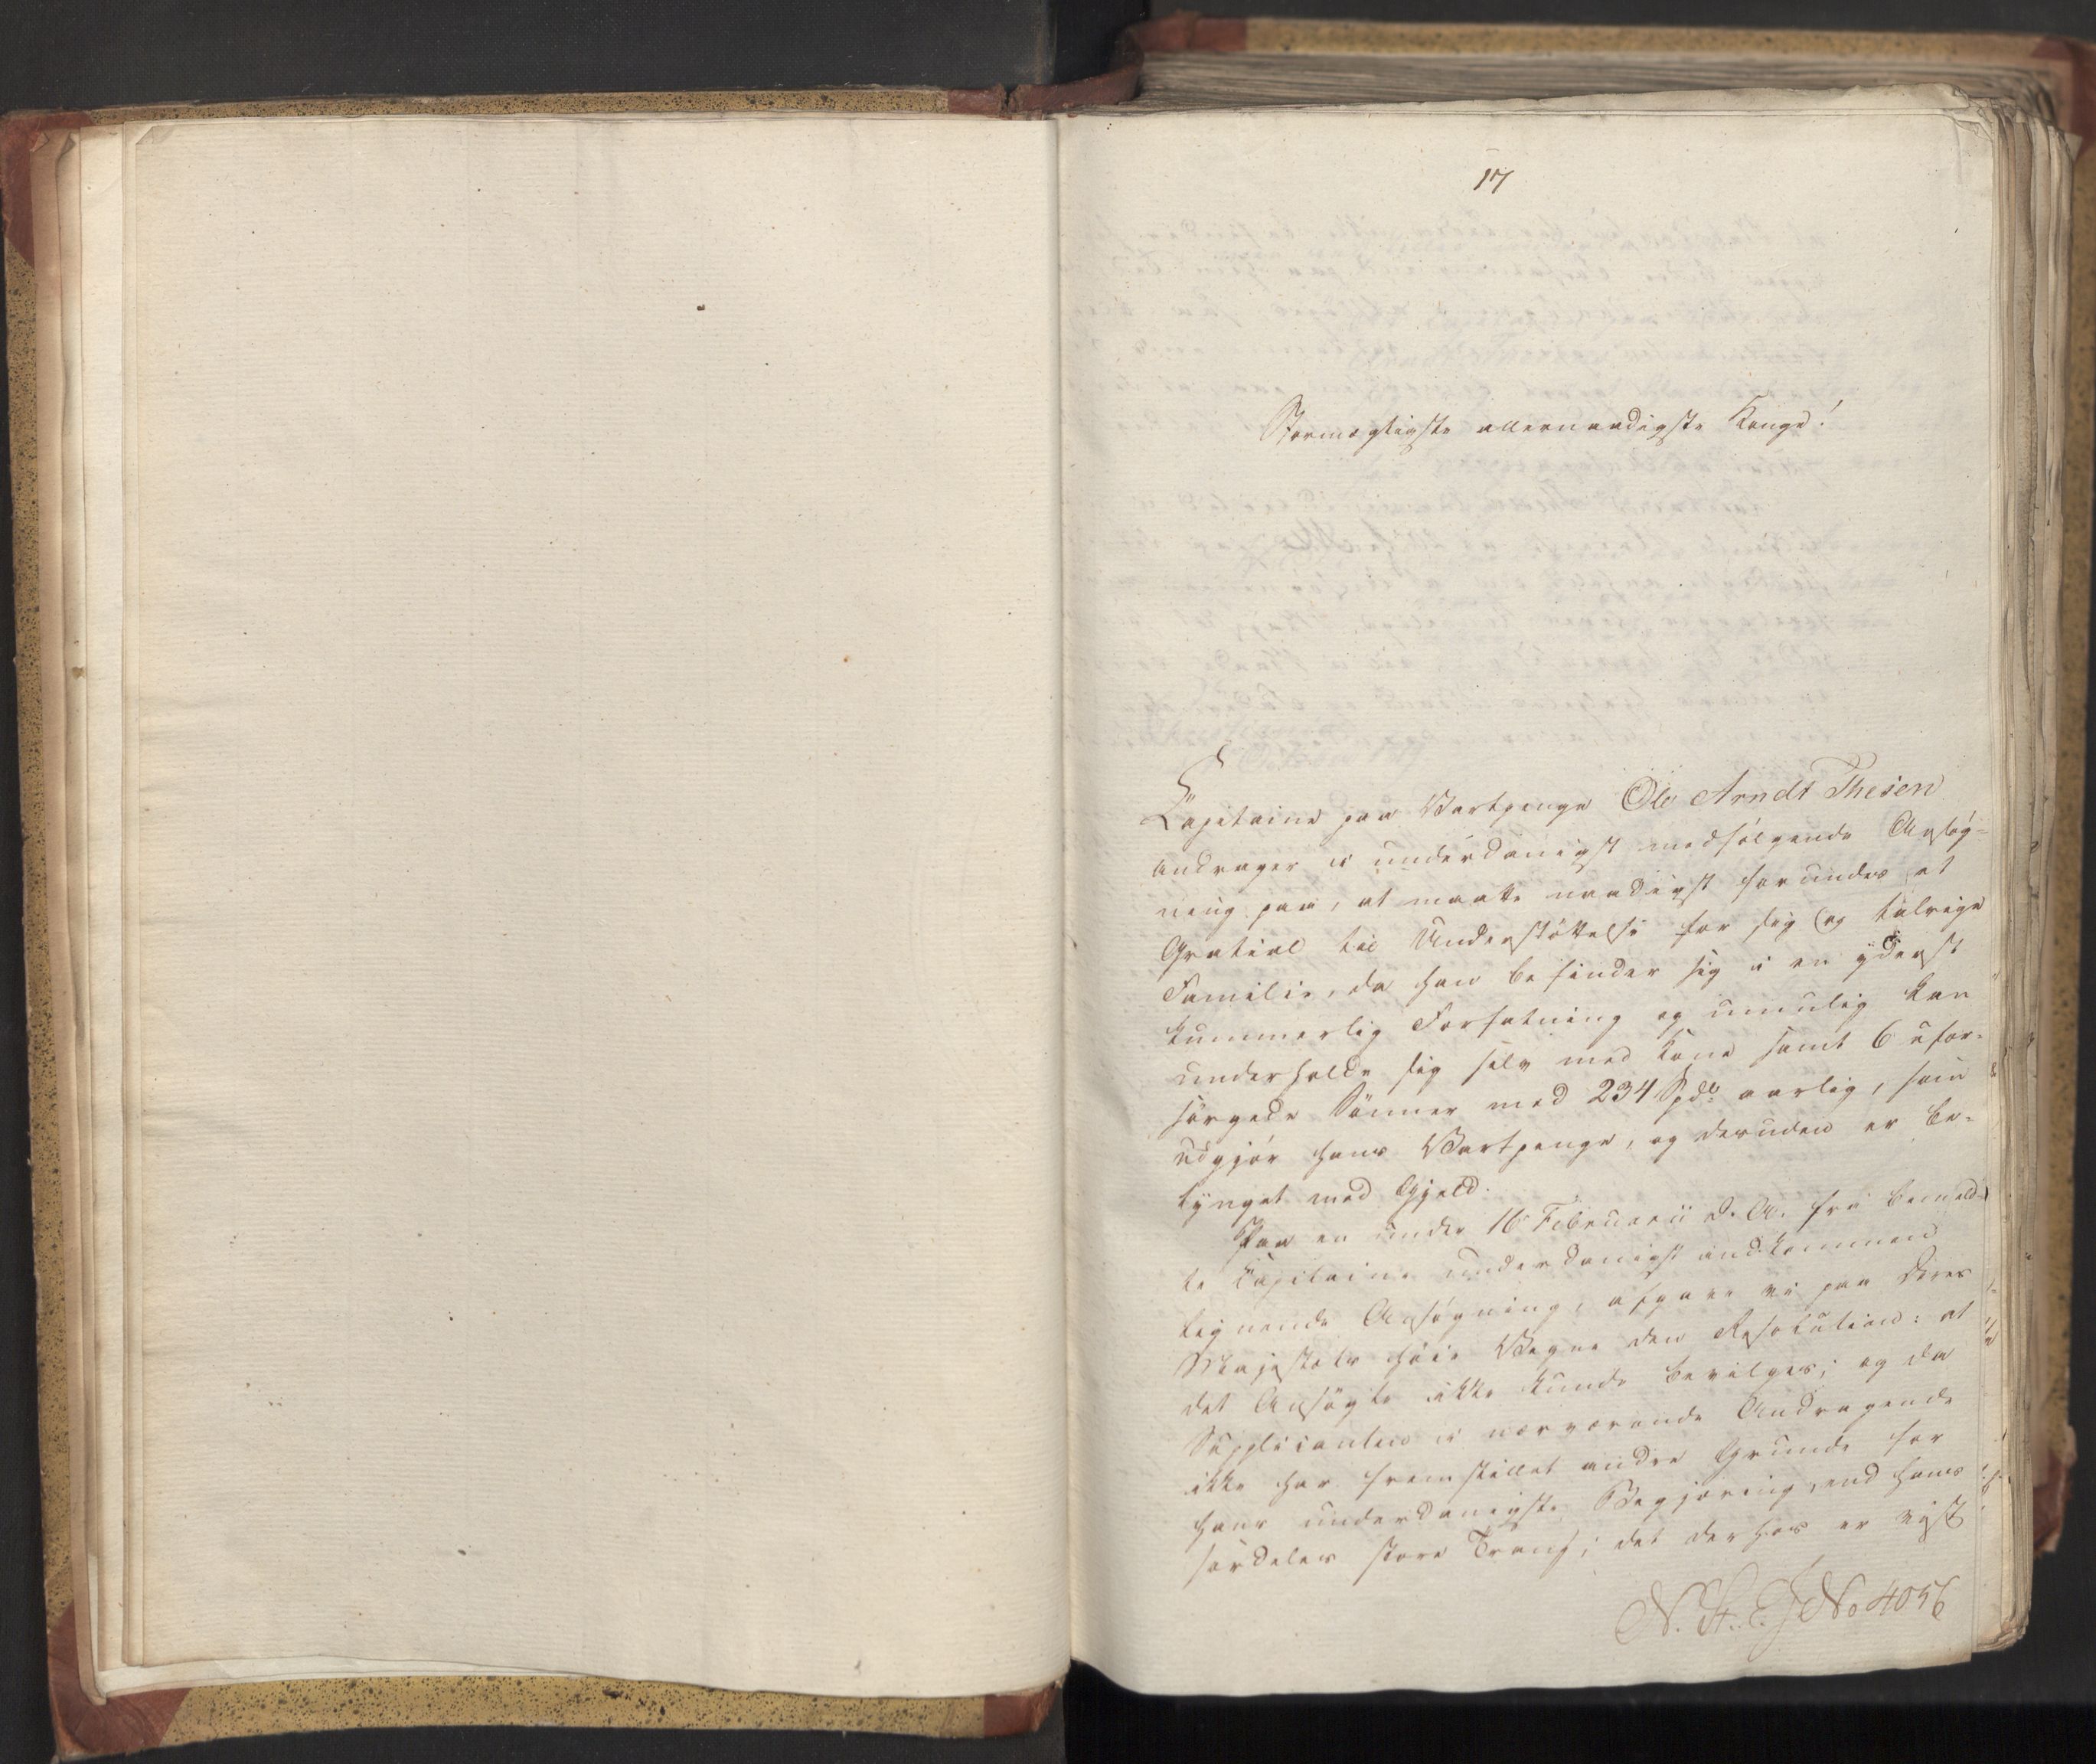 17
Stormægtigste allernaadigste Konge!
Capitaine paa Vartpenge Ole Arndt Thesen
andrager i underdanigst medfølgende Ansøg-
ning paa, at maatte naadigst forundes et
Gratial til Understøttelse for sig og talrige
Familie, da han befinder sig i en yderst
kummerlig Forfatning og umulig kan
underholde sig selv med Kone samt 6 ufor-
sørgede Sønner med 234 Spd. aarlig, som
udgjør hans Vartpenge, og desuden er be-
tynget med Gjeld.
Paa en under 16 Februarii d. A. fra bemeld-
te Capitaine underdanigst indkommen
lignende Ansøgning, afgave vi paa Deres
Majestæts høie Vegne den Resolution: at
det Ansøgte ikke kunde bevilges; og da
Supplicanten i nærværende Andragende
ikke har fremstillet andre Grunde for
hans underdanigste Begjæring, end hans
særdeles store Trang; det derhos er vist
No 4056